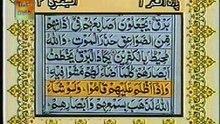 البقرة ٢
بَرْقٌ يَجْعَلُونَ أَصَابِعَهُمْ فِي آذَانِهِمْ
مِنَ الصَّوَاعِقِ حَذَرَ الْمَوْتِ وَاللَّهُ
مُحِيطٌ بِالْكَافِرِينَ يَكَادُ الْبَرْقُ يَخْطَفُ
أَبْصَارَهُمْ كُلَّمَا أَضَاءَ لَهُمْ مَشَوْا فِيهِ
وَإِذَا أَظْلَمَ عَلَيْهِمْ قَامُوا وَلَوْ شَاءَ
اللَّهُ لَذَهَبَ بِسَمْعِهِمْ وَأَبْصَارِهِمْ